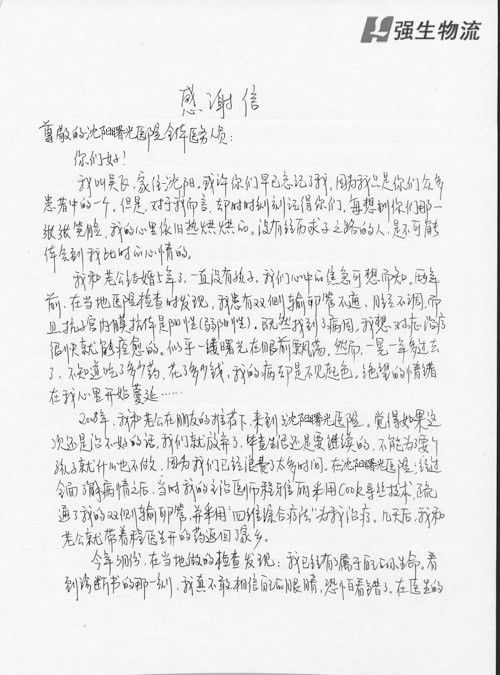 强生物流
感谢信
尊敬的沈阳曙光医院全体医务人员：
你们好！
我叫吴辰，家住沈阳。或许你们早已忘记了我，因为我只是你们众多
患者中的一个。但是，对于我而言，却时时刻刻记得你们。每想到你们那一
张张笑脸，我的心里依旧热烘烘的。没有经历求子之路的人，是不可能
体会到我此时的心情的。
我和老公结婚5年了，一直没有孩子，我们心中的焦急可想而知。两年
前，在当地医院检查时发现，我患有双侧输卵管不通，月经不调，而
且抗子宫内膜抗体是阳性（弱阳性）。既然找到了病因，我想对症治疗
很快就能痊愈的。似乎一缕曙光在眼前飘荡。然而，一晃一年多过去
了，不知道吃了多少药，花了多少钱，我的病却是不见起色。绝望的情绪
在我心里开始蔓延……
2008年，我和老公在朋友的推荐下，来到了沈阳曙光医院。觉得如果这
次还是治不好的话，我们就放弃了，毕竟生活还是要继续的，不能为了要个
孩子就什么也不做，因为我们已经浪费了太多时间。在沈阳曙光医院，经过
全面了解病情之后，当时我的主治医师穆雅丽采用COOK导丝技术，疏
通了我的双侧输卵管，并采用“四维综合疗法”为我治疗。几天后，我和
老公就带着穆医生开的药返回了家乡。
今年5月份，在当地做的检查发现：我已经有了属于自己的小生命。看
到诊断书的那一刻，我真不敢相信自己的眼睛，恐怕看错了。在医生的